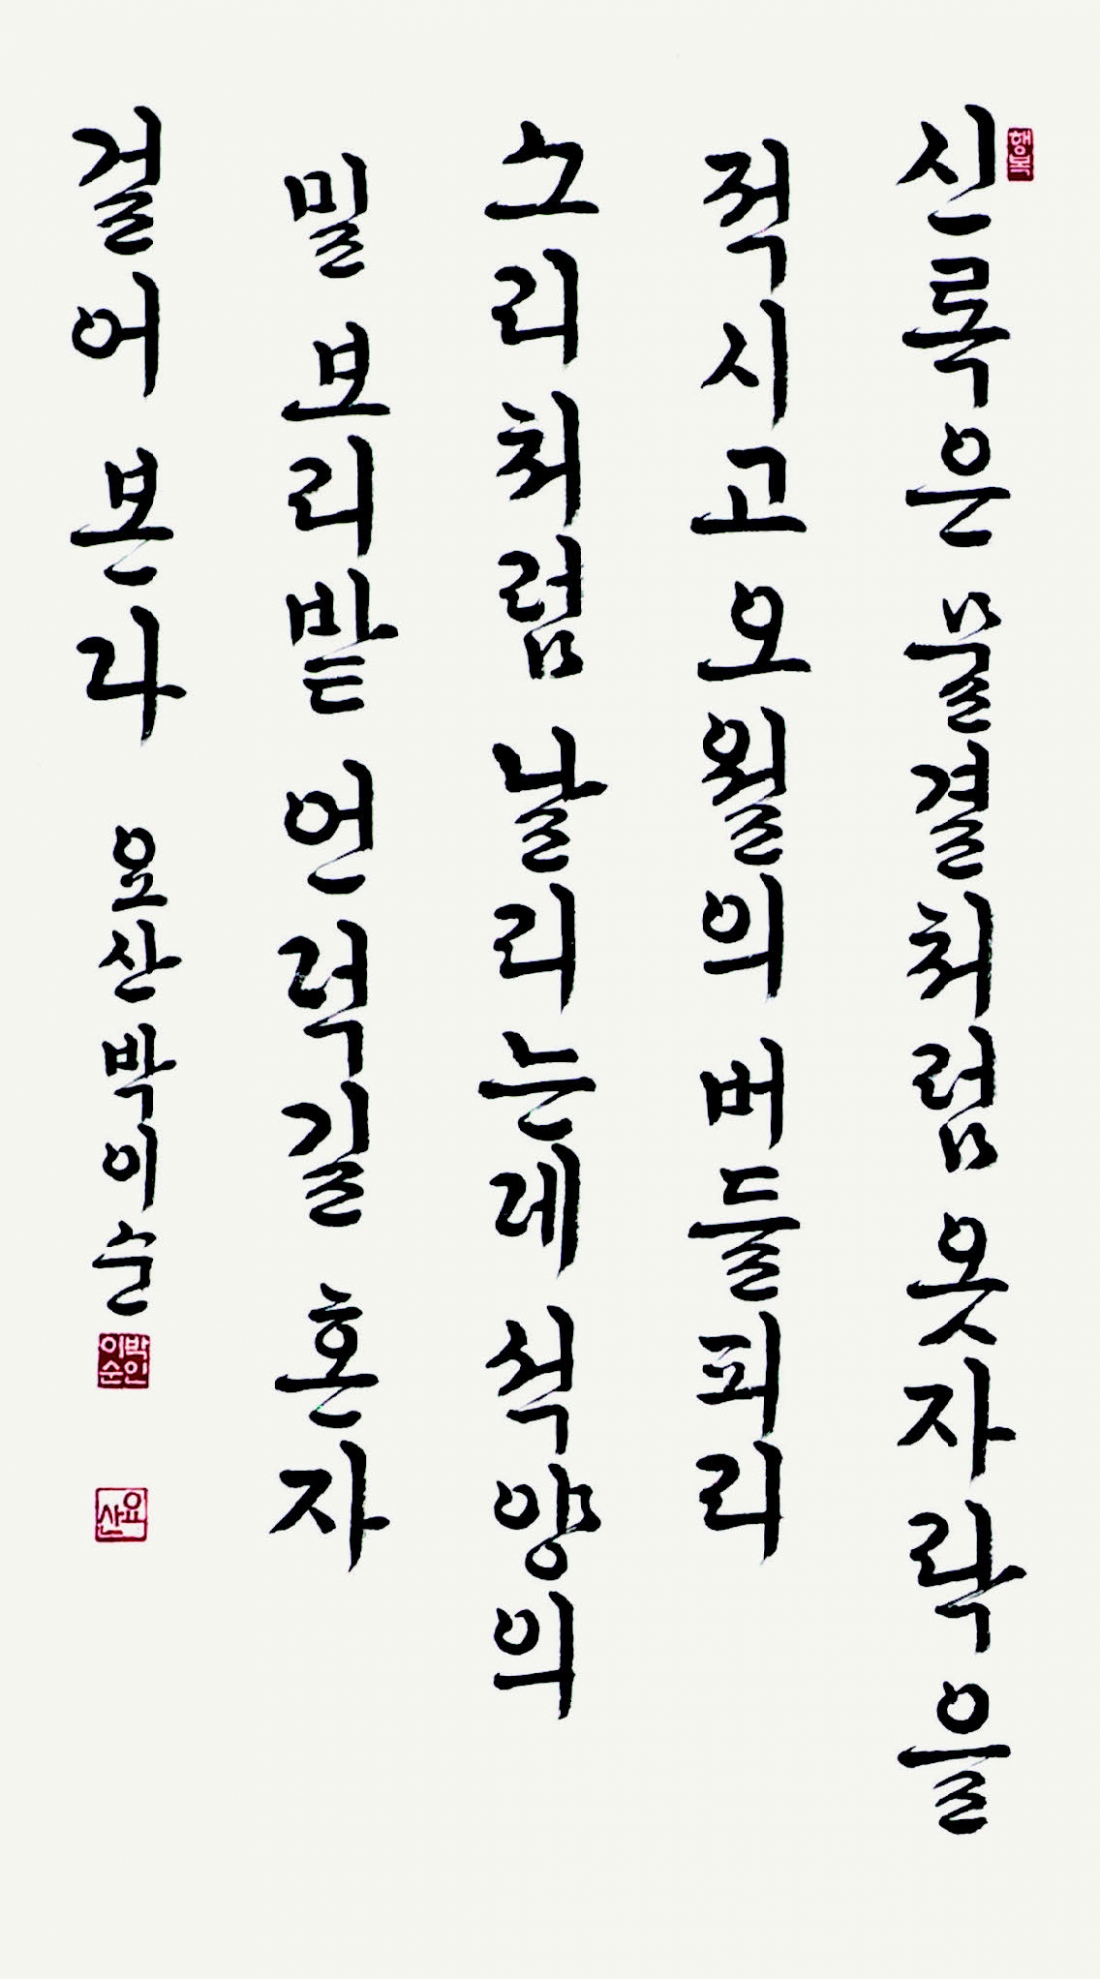 행복
신록은 물결처럼 옷자락을
적시고 오월의 버들피리
소리처럼 날리는데 석양의
밀 보리밭 언덕길 혼자
걸어 본다
요산 박이순
박이순인
요산